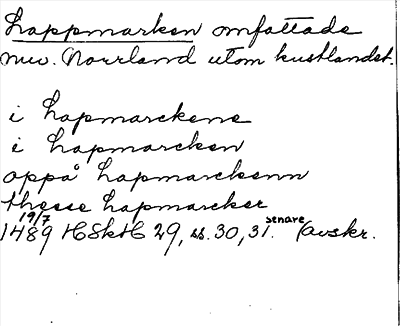 Lappmarken omfattade
nuv. Norrland utom kustlandet.
i Lapmarckene
i Lapmarcken
oppå Lapmarckenn
thesse Lapmarcker
19/7 senare
1489 HSkH 29, ss. 30, 31. (avskr.